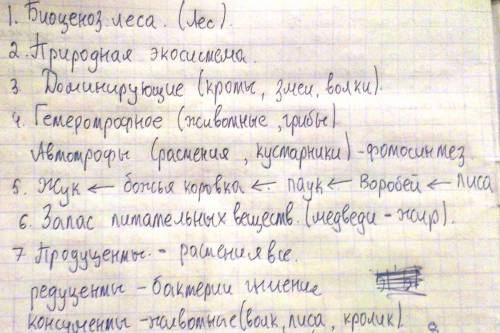 1. Биоценоз леса. (Лес).
2. Природная экосистема.
3. Доминирующие (кроты, змеи, волки).
4. Гетеротрофное (животные, грибы)
Автотрофы (растения, кустарники) - фотосинтез
5. Жук ← божья коровка ← паук ← Воробей ← лиса
6. Запас питательных веществ. (медведи - жир).
7 Продуценты. - растения все.
редуценты - бактерии гниение
консументы - животные (волк, лиса, кролик)